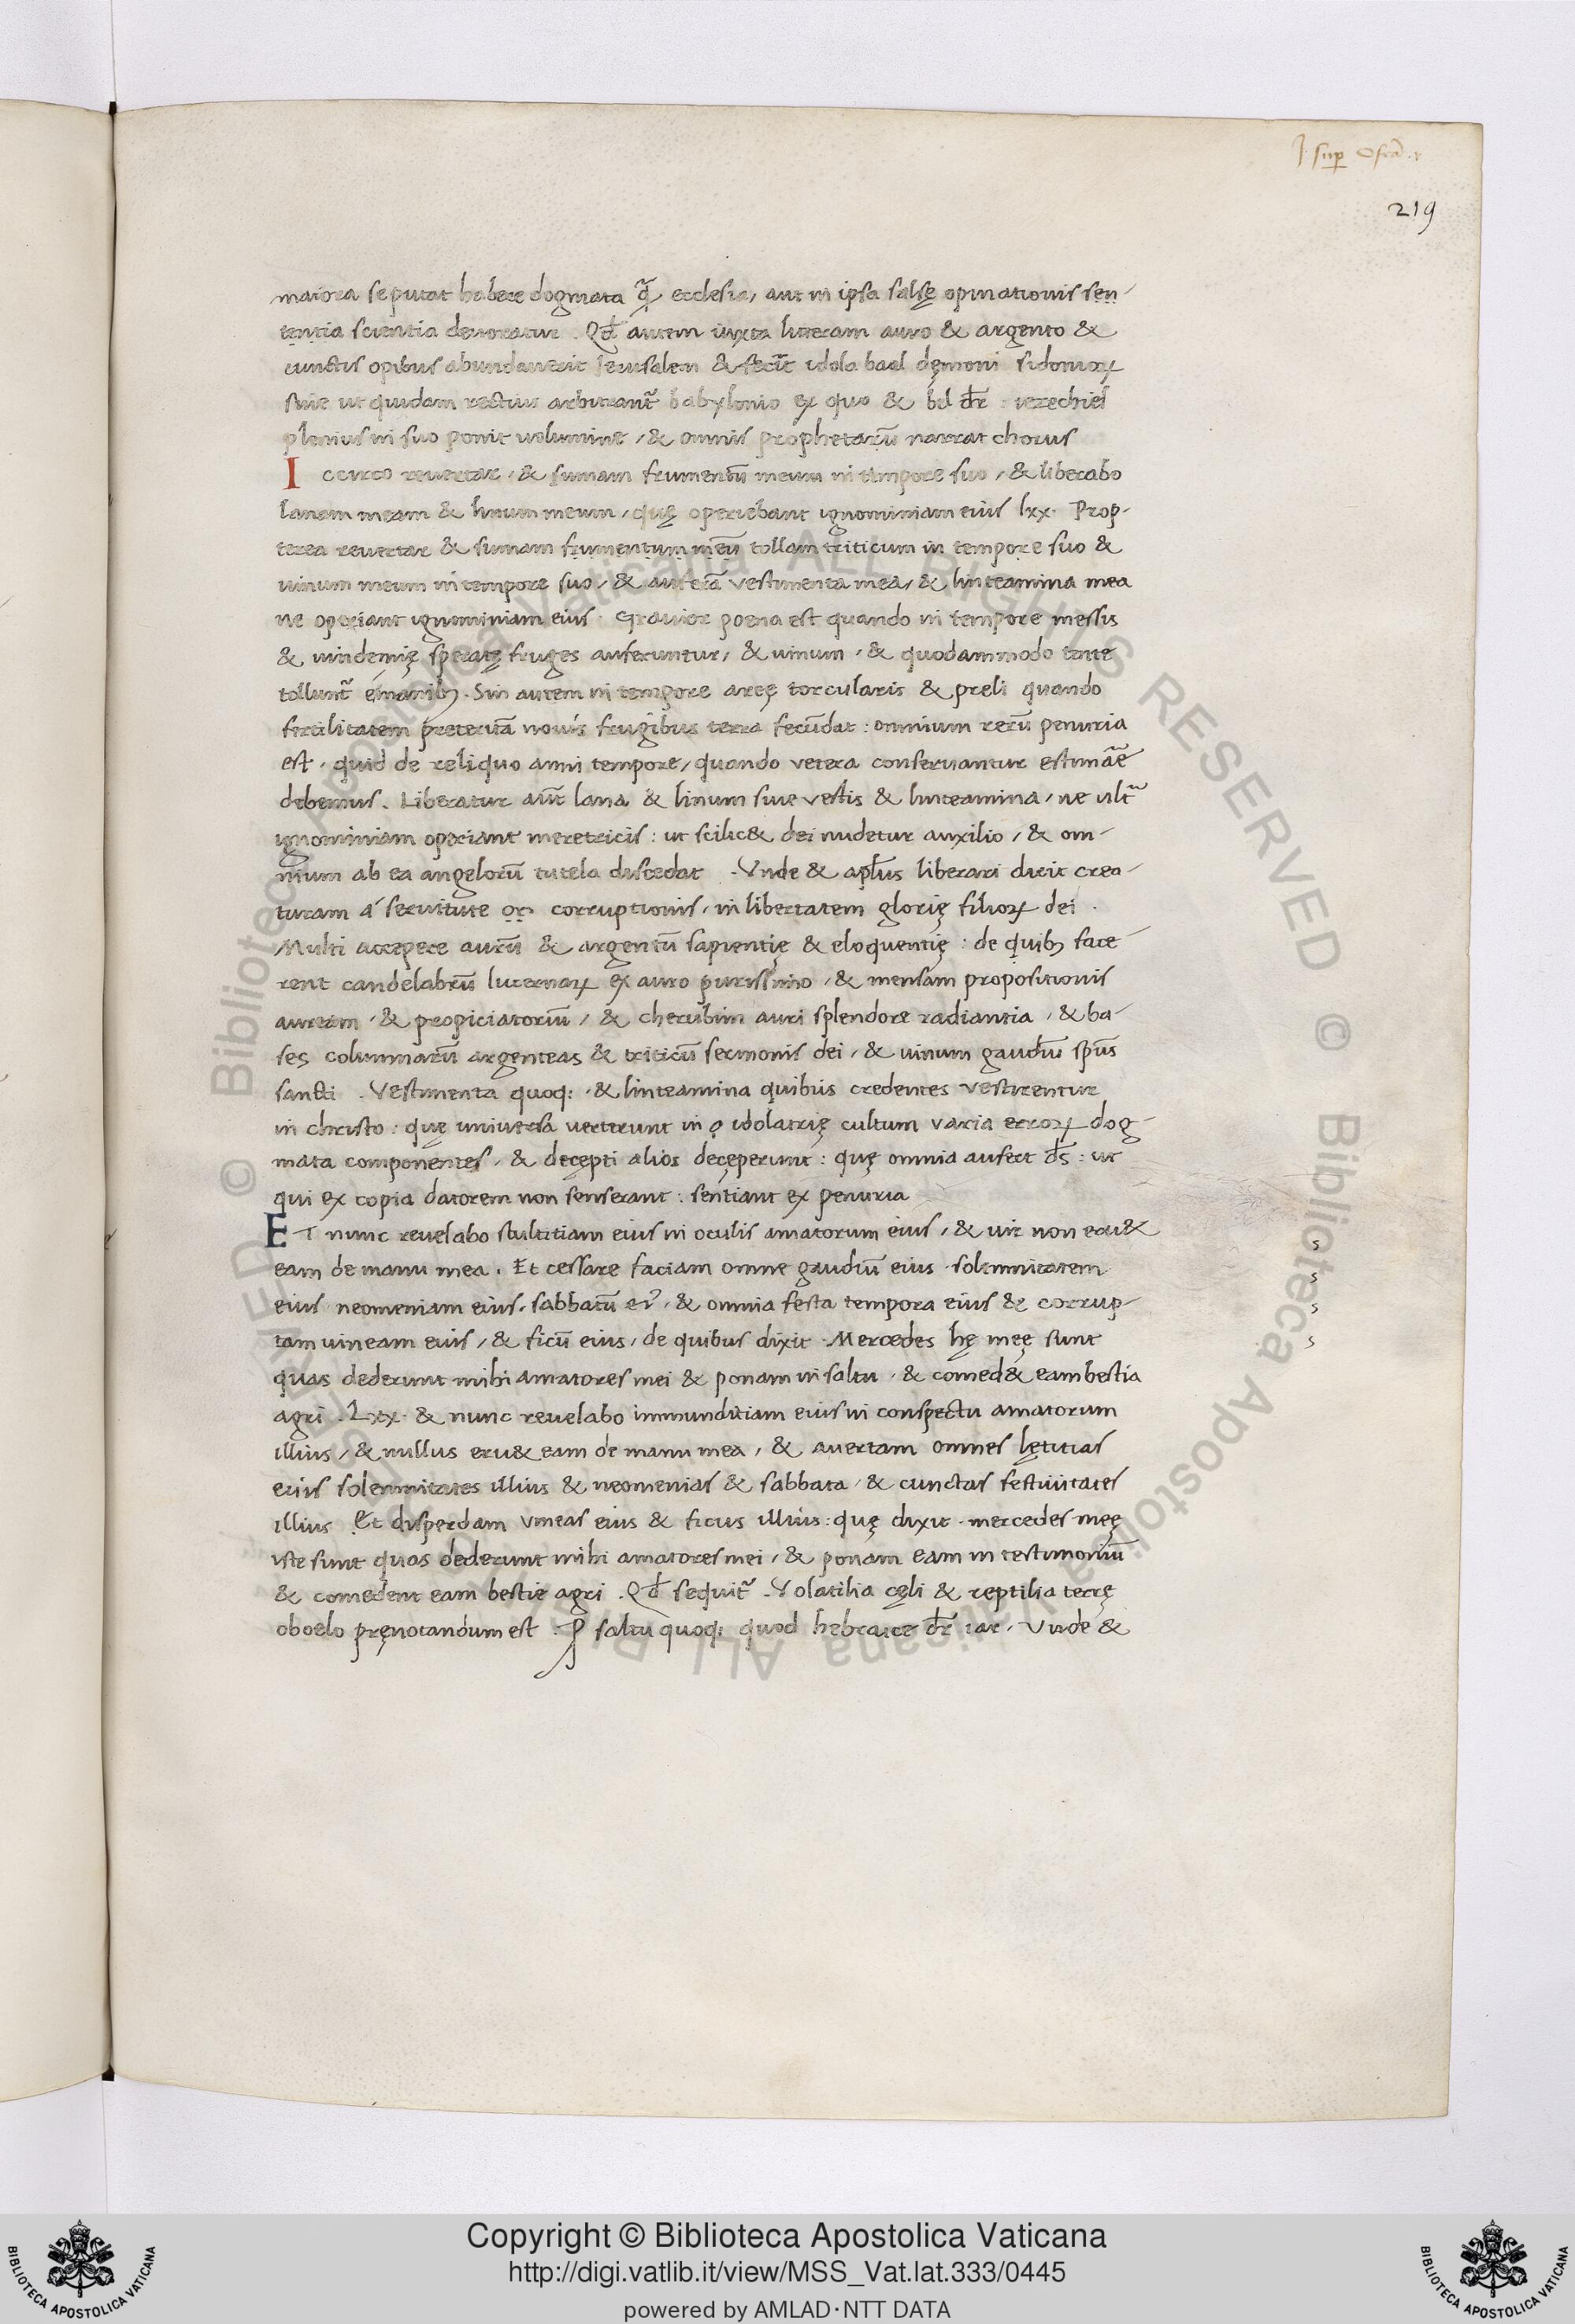 J sup Osea
219
maiora se putat habere dogmata q̃ ecclesia, aut in ipsa falsę opinationis sen-
tentia scientia deuoratur. Qđ autem iuxta litteram auro & argento &
cunctis opibus abundauerit ierusalem & fecit idola baal dęmoni sidonioꝝ
siue ut quidam rectius arbitrant᷑ babylonio ex quo & bel dr̄: iezechiel
plenius in suo ponit uolumine, & omnis prophetarū narrat chorus
I cerco reuertar, & sumam frumentū meum in tempore suo, & liberabo
lanam meam & linum meum, quę operiebant ignominiam eius lxx. Prop-
terea reuertar & sumam frumentum meū tollam triticum in tempore suo &
uinum meum in tempore suo, & auferā vestimenta mea, & linteamina mea
ne operiant ignominiam eius. Grauior poena est quando in tempore messis
& uindemię speratę fruges auferuntur, & uinum, & quodammodo
tollunt᷑ é manibꝫ. Sin autem in tempore areę torcularis & preli quando
fertilitatem preteritā nouis frugibus terra fecūdat: omnium rerū penuria
est, quid de reliquo anni tempore, quando vetera conseruantur estimāe
debemus. Liberatur aūt lana & linum siue vestis & linteamina, ne ult᷑
ignominiam operiant meretricis: ut scilic& dei nudetur auxilio, & om-
nium ab ea angelorū tutela discedat. Vnde & apl̄us liberari dicit crea-
turam á seruitute or corruptionis, in libertatem glorię filioꝝ dei.
Multi accepere aurū & argentū sapientię & eloquentię: de quibꝫ face-
rent candelabrū lucernaꝝ ex auro purissimo, & mensam propositionis
auream, & propiciatoriū, & cherubim auri splendore radiantia, & ba-
ses columnarū argenteas & triticū sermonis dei, & uinum gaudiū sp̄us
sancti. Vestimenta quoq:, & linteamina quibus credentes vestirentur
in christo: quę uniuersa verterunt in o idolatrię cultum varia erroꝝ dog-
mata componentes, & decępti alios decęperunt: quę omnia aufert d̄s: ut
qui ex copia datorem non senserant: sentiant ex penuria
ET nunc reuelabo stultitiam eius in oculis amatorum eius, & uir non eru&
eam de manu mea. Et cessare faciam omne gaudiū eius solemnitatem
eius neomeniam eius, sabbatū ei᷑, & omnia festa tempora eius & corrup-
tam uineam eius, & ficū eius, de quibus dixit. Mercedes hę meę sunt
quas dederunt mihi amatores mei & ponam in saltu, & comed& eam bestia
agri. Lxx. & nunc reuelabo immunditiam eius in conspectu amatorum
illius, & nullus eru& eam de manu mea, & auertam omnes lętitias
eius solemnitates illius & neomenias & sabbata, & cunctas festiuitates
illius Et disperdam vineas eius & ficus illius: quę dixit. mercedes meę
iste sunt quas dederunt mihi amatores mei, & ponam eam in testimoniū
& comedent eam bestie agri. Qđ sequit᷑. Volatilia cęli & reptilia terrę
oboelo pręnotandum est. P saltu quoq: quod hebraice dr̄ iar, Vnde &
s
s
s
s
Copyright © Biblioteca Apostolica Vaticana
http://digi.vatlib.it/view/MSS_Vat.lat.333/0445
powered by AMLAD·NTT DATA
BIBLIOTECA APOSTOLICA VATICANA
BIBLIOTECA APOSTOLICA VATICANA
© Biblioteca Apostolica Vaticana ALL RIGHTS RESERVED © Biblioteca Apostolica Vaticana ALL RIGHTS RESERVED